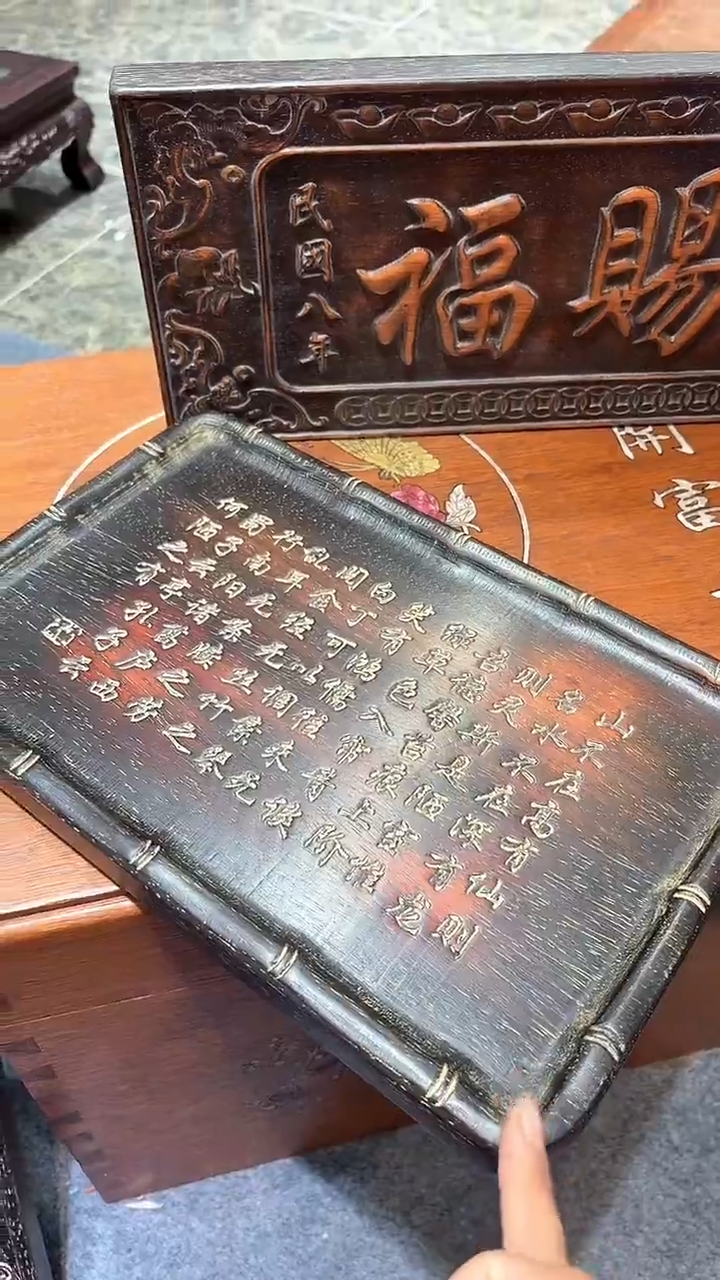 赐福
民國八年
開富
山不在高有仙则
名水不在深有龙
则灵斯是陋室惟
吾德馨苔痕上阶
绿草色入帘青谈
笑有鸿儒往来无
白丁可以调素琴
阅金经无丝竹之
乱耳无案牍之劳
行南阳诸葛庐西
蜀子云亭孔子云
何陋之有